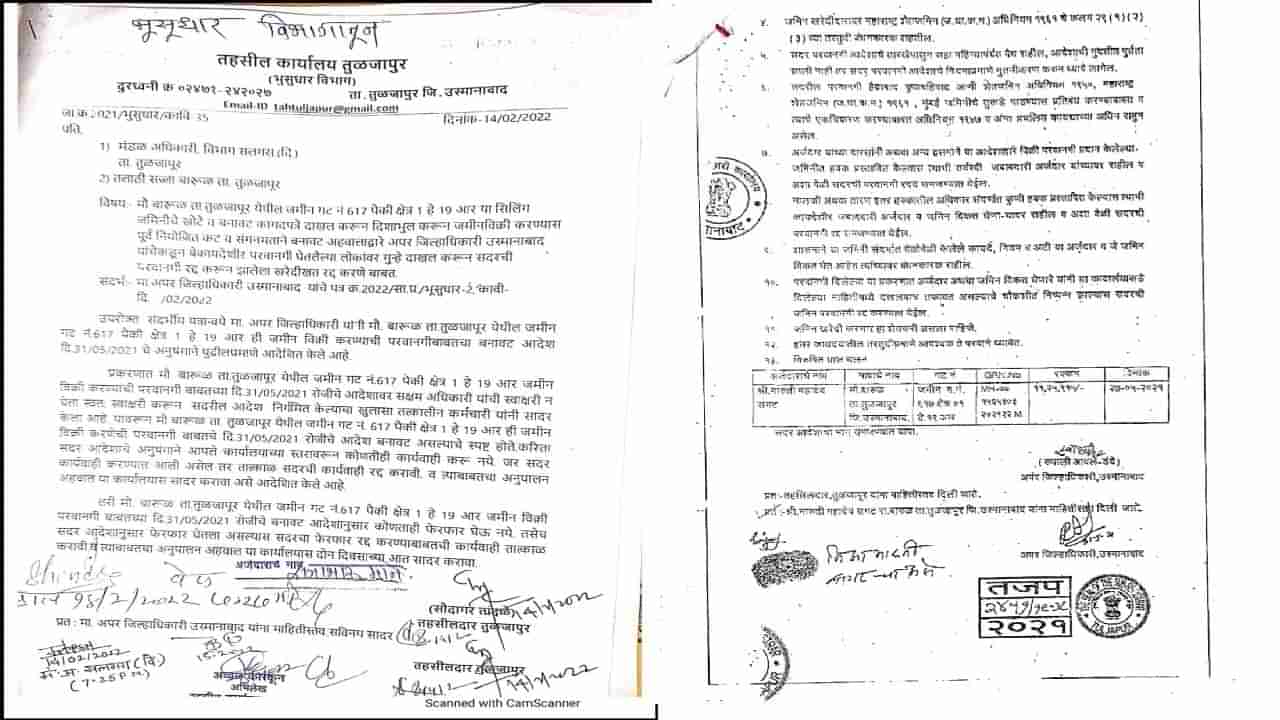 भूसूधार विभागातून
तहसील कार्यालय तुळजापूर
(भुसुधार विभाग)
दुरध्वनी क्र ०२४७१-२४२०२७ ता.तुळजापूर जि. उस्मानाबाद
Email-ID Tahtuljapur@gmail.com
जा.क्र.2021/भुसुधार/कावि-35 दिनांक-14/02/2022
प्रति,
1) मंडळ अधिकारी, विभाग सलगरा (दि)
ता. तुळजापूर
2) तलाठी सज्जा बारूळ ता. तुळजापूर
विषय:- मौ बारूळ ता.तुळजापूर येथील जमीन गट नं 617 पैकी क्षेत्र 1 हे 19 आर या सिलिंग
जमिनीचे खोटे व बनावट कागदपत्रे दाखल करून दिशाभुल करून जमीनविक्री करण्यास
पूर्व नियोजित कट व संगनमताने बनावट अहवालाद्वारे अपर जिल्हाधिकारी उस्मानाबाद
यांचेकडून बेकायदेशीर परवानगी घेतलेल्या लोकांवर गुन्हे दाखल करून सदरची
परवानगी रद्द करून झालेला खरेदीखत रद्द करणे बाबत.
संदर्भ:- मा.अपर जिल्हाधिकारी उस्मानाबाद यांचे पत्र क्र.2022/सा.प्र./भूसुधार-2/कावी-
दि. /02/2022
उपरोक्त संदर्भीय पत्रान्वये मा. अपर जिल्हाधिकारी यांनी मौ. बारूळ ता.तुळजापूर येथील जमीन
गट नं.617 पैकी क्षेत्र 1 हे 19 आर ही जमीन विक्री करण्याची परवानगीबाबतचा बनावट आदेश
दि.31/05/2021 चे अनुषंगाने पुढीलप्रमाणे आदेशित केले आहे.
प्रकरणात मौ. बारूळ ता.तुळजापूर येथील जमीन गट नं.617 पैकी क्षेत्र 1 हे 19 आर जमीन
विक्री करण्याची परवानगी बाबतच्या दि.31/05/2021 रोजीचे आदेशावर सक्षम अधिकारी यांची स्वाक्षरी न
घेता स्वत: स्वाक्षरी करून सदरील आदेश निर्गमित केल्याचा खुलासा तत्कालीन कर्मचारी यांनी सादर
केला आहे. यावरून मौ बारूळ ता. तुळजापूर येथील जमीन गट नं. 617 पैकी क्षेत्र 1 हे 19 आर ही जमीन
विक्री करणेची परवानगी बाबतचे दि.31/05/2021 रोजीचे आदेश बनावट असल्याचे स्पष्ट होते.करिता
सदर आदेशाचे अनुषंगाने आपले कार्यालयाच्या स्तरावरून कोणतीही कार्यवाही करू नये. जर सदर
कार्यवाही करण्यात आली असेल तर तात्काळ सदरची कार्यवाही रद्द करावी. व त्याबाबतचा अनुपालन
अहवाल या कार्यालयास सादर करावा असे आदेशित केले आहे.
तरी मौ. बारूळ ता.तुळजापूर येथील जमीन गट नं.617 पैकी क्षेत्र 1 हे 19 आर जमीन विक्री
परवानगी बाबतच्या दि.31/05/2021 रोजीचे बनावट आदेशानुसार कोणताही फेरफार घेऊ नये. तसेच
सदर आदेशानुसार फेरफार घेतला असल्यास सदरचा फेरफार रद्द करण्याबाबतची कार्यवाही तात्काळ
करावी.व त्याबाबतचा अनुपालन अहवाल या कार्यालयास दोन दिवसाच्या आत सादर करावा.
अर्जदाराचे नाव
(सौदागर तांदळे)
तहसीलदार तुळजापूर
प्रत : मा. अपर जिल्हाधिकारी उस्मानाबाद यांना माहितीस्तव सविनय सादर
14/02/2022
म.अ. सलगरा (दि)
(7-25 P.M)
अभिलेख
तहसीलदार तुळजापूर
Scanned with CamScanner
४. जमिन खरेदीदारावर महाराष्ट्र शेतजमिन (ज.धा.क.म.) अधिनियम १९६१ चे कलम २९ (१) (२)
(३) च्या तरतुदी बंधनकारक राहतील.
५. सदर परवानगी आदेशाचे तारखेपासुन सहा महिन्यापर्यंत वैध राहील, आदेशाची मुदतीत पुर्तता
झाली नाही तर सदर परवानगी आदेशाचे नियमाप्रमाणे नुतनीकरण करून घ्यावे लागेल.
६. सदरील परवानगी हैद्राबाद कुळवहिवाट आणी शेतजमिन अधिनियम १९५०, महाराष्ट्र
शेतजमिन (ज.धा.क.म.) १९६१, मुंबई जमिनीचे तुकडे पाडण्यास प्रतिबंध करण्याबाबत व
त्यांचे एकत्रिकरण करण्याबाबत अधिनियम १९४७ व अन्य प्रचलित कायद्याच्या अधिन राहुन
असेल.
७. अर्जदार यांच्या वारसांनी अथवा अन्य इसमाने या आदेशाव्दारे विक्री परवानगी प्रदान केलेल्या
जमिनीत हक्क प्रस्तावित केल्यास त्याची सर्वस्वी जबाबदारी अर्जदार यांच्यावर राहील व
अशा वेळी सदरची परवानगी रद्द समजण्यात येईल.
मालकी अथवा तारण इतर हक्कातील अधिकार संदर्भात कुणी हक्क प्रस्तापित केल्यास त्याची
कायदेशीर जबाबदारी अर्जदार व जमिन विकत घेणा-यावर राहील व अशा वेळी सदरची
परवानगी रद्द समजण्यात येईल.
९. शासनाने या जमिनी संदर्भात वेळोवेळी केलेले कायदे, नियम व अटी या अर्जदार व जे जमिन
विकत घेत आहेत त्यांच्यावर बंधनकारक राहील.
१०. परवानगी दिलेल्या या प्रकरणात अर्जदार अथवा जमिन विकत घेणारे यांनी या कार्यालयाकडे
दिलेल्या माहितीमध्ये तफावत असल्याचे चौकशीत निष्पन्न झाल्यास सदरची
जमिन परवानगी रद्द करण्यात येईल.
११. जमिन खरेदी करणार हा शेतकरी असला पाहिजे.
१२. इतर कायद्यातील तरतुदीप्रमाणे आवश्यक ते परवाने घ्यावेत.
१३.
अर्जदाराचे नाव गावाचे नाव गट नं GRN.No रक्कम दिनांक
श्री.मारुती महादेव मौ.बारुळ जमीन स.नं. MH-००
सगट ता.तुळजापूर
जि.उस्मानाबाद.
अपर जिल्हाधिकारी,उस्मानाबाद
प्रत:-तहसिलदार,तुळजापूर यांना माहितीस्तव दिली जाते.
प्रत:-श्री.मारुती महादेव सगट रा.बारुळ ता.तुळजापूर जि.उस्मानाबाद यांना माहितीस्तव दिली जाते.
अपर जिल्हाधिकारी,उस्मानाबाद
तजप
२०२१